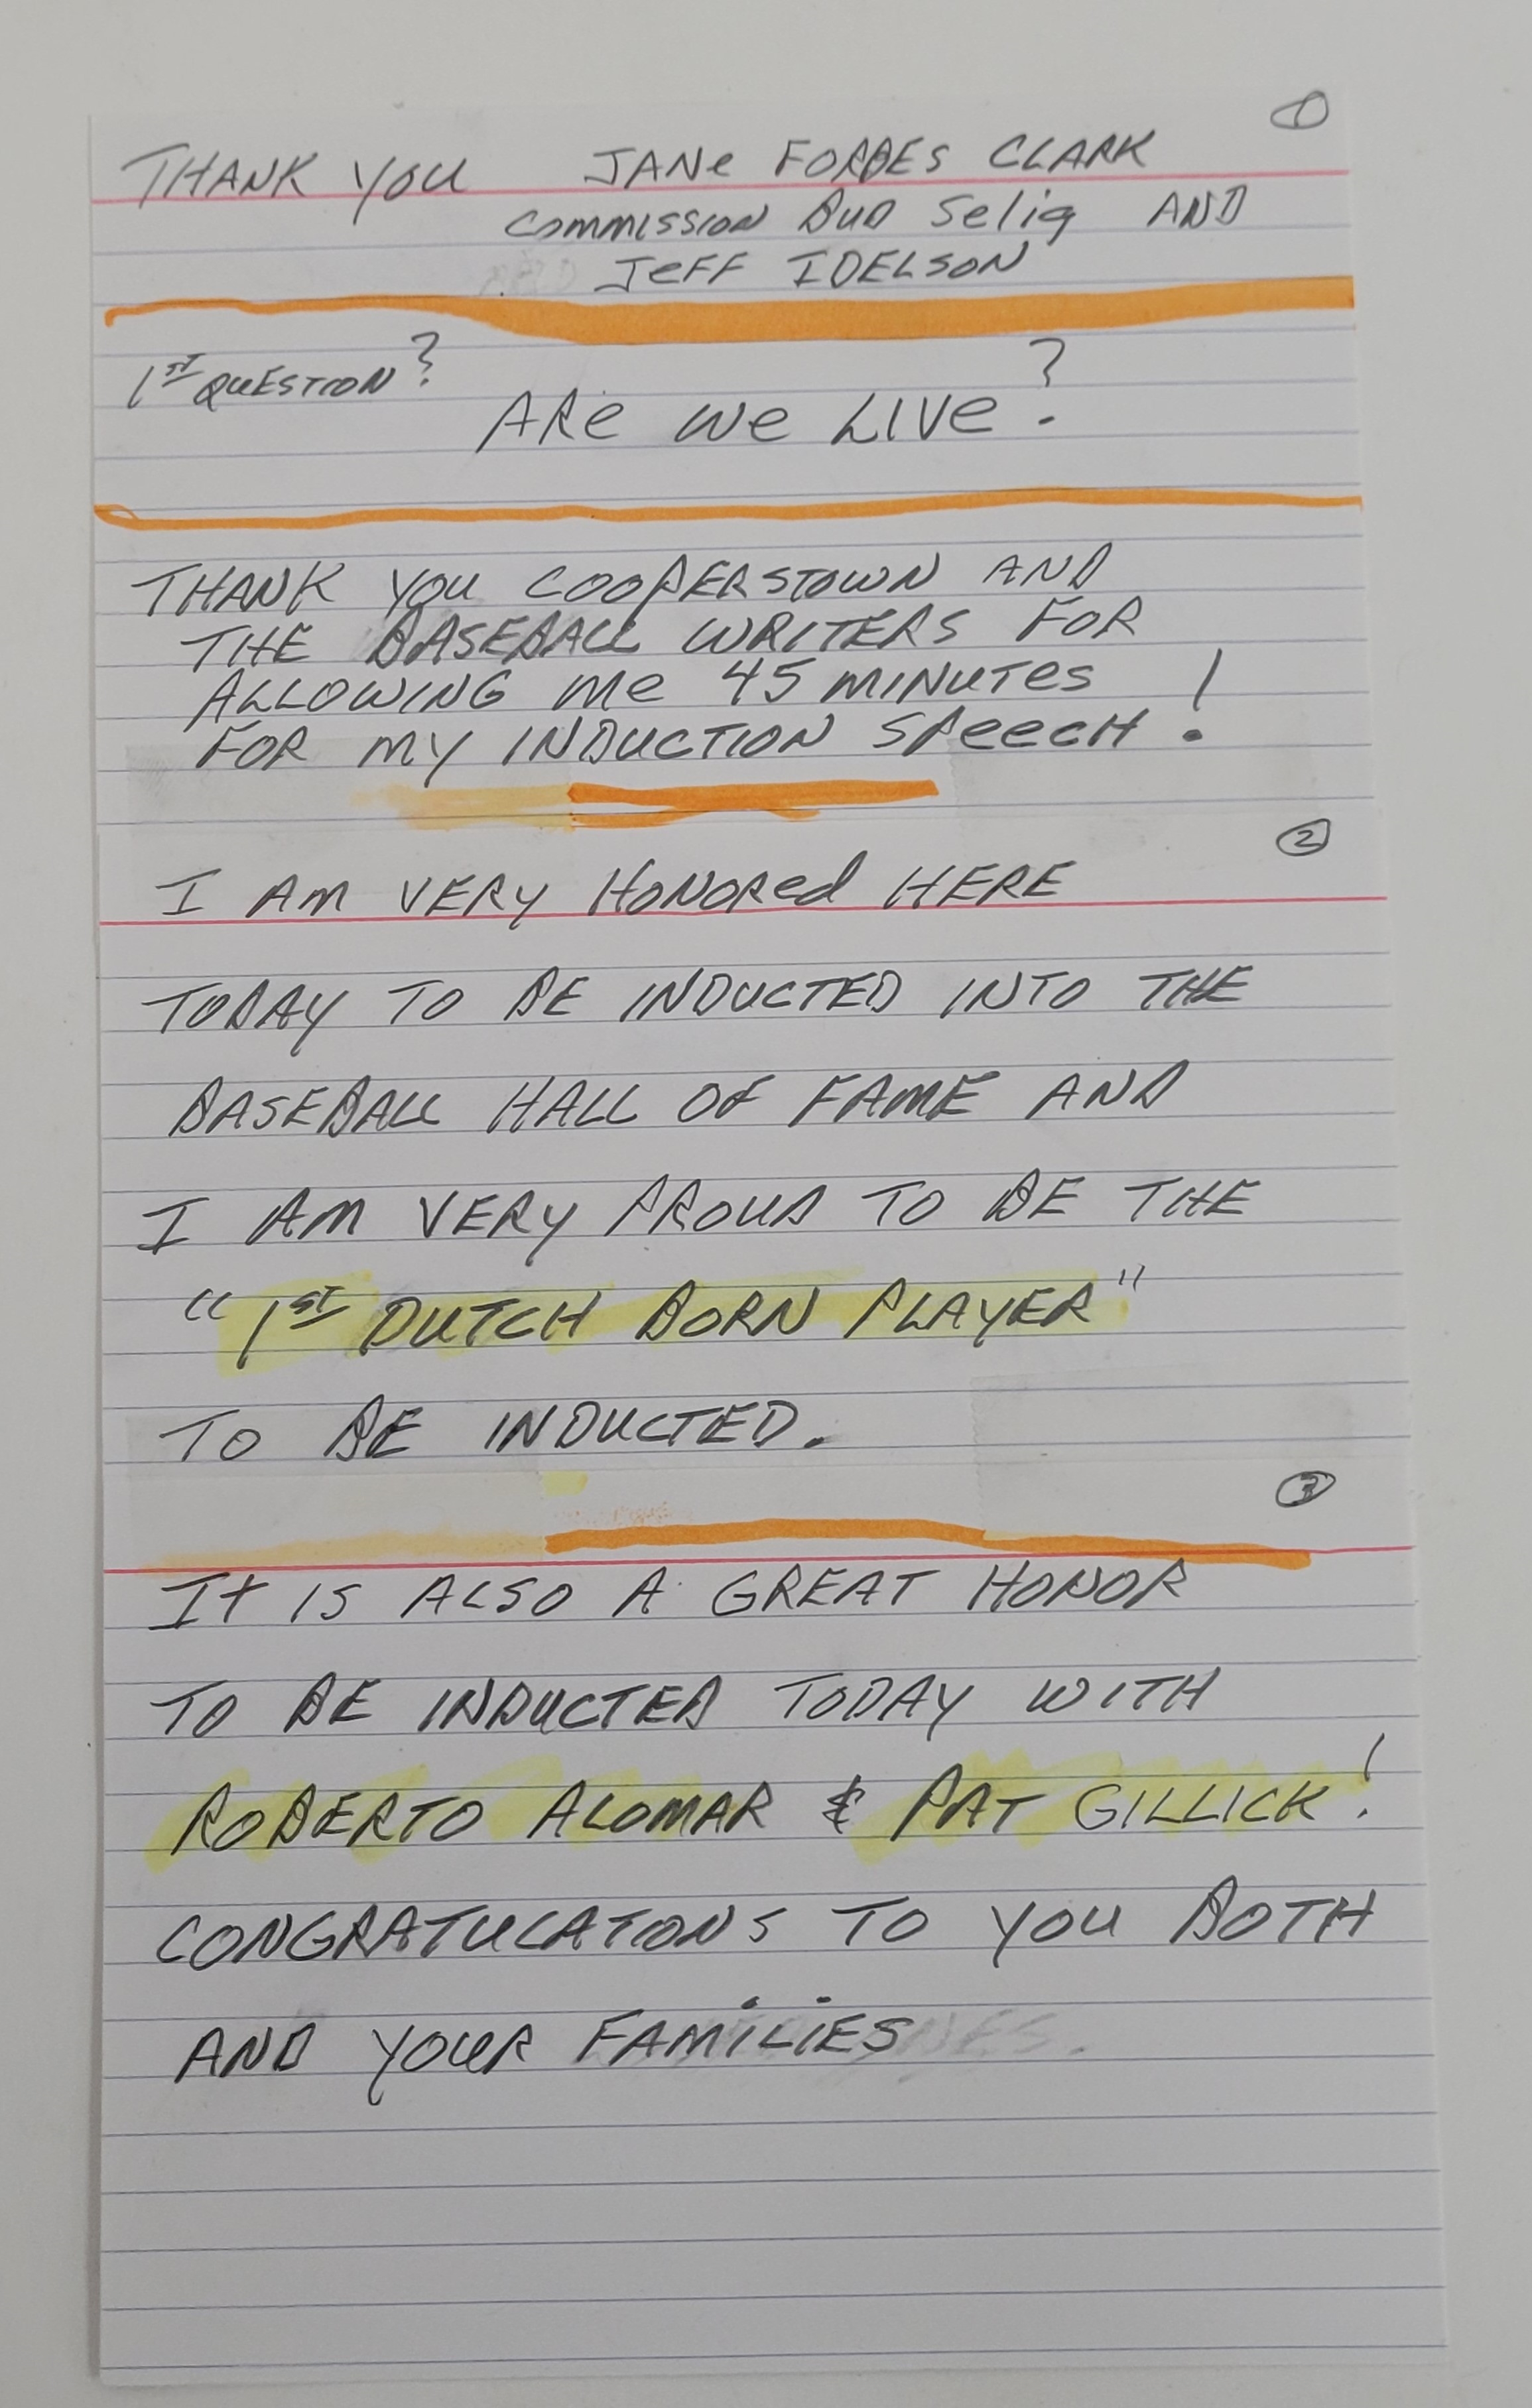 ①
THANK YOU JANE FORBES CLARK
COMMISSION BUD Selig AND
JEFF IDELSON
1ST QUESTION?
ARE WE LIVE?
THANK YOU COOPERSTOWN AND
THE BASEBALL WRITERS FOR
ALLOWING ME 45 MINUTES
FOR MY INDUCTION SPEECH!
②
I AM VERY HONORED HERE
TODAY TO BE INDUCTED INTO THE
BASEBALL HALL OF FAME AND
I AM VERY PROUD TO BE THE
"1ST DUTCH BORN PLAYER"
TO BE INDUCTED.
③
It IS ALSO A GREAT HONOR
TO BE INDUCTED TODAY WITH
ROBERTO ALOMAR & PAT GILLICK!
CONGRATULATONS TO YOU BOTH
AND YOUR FAMILIES